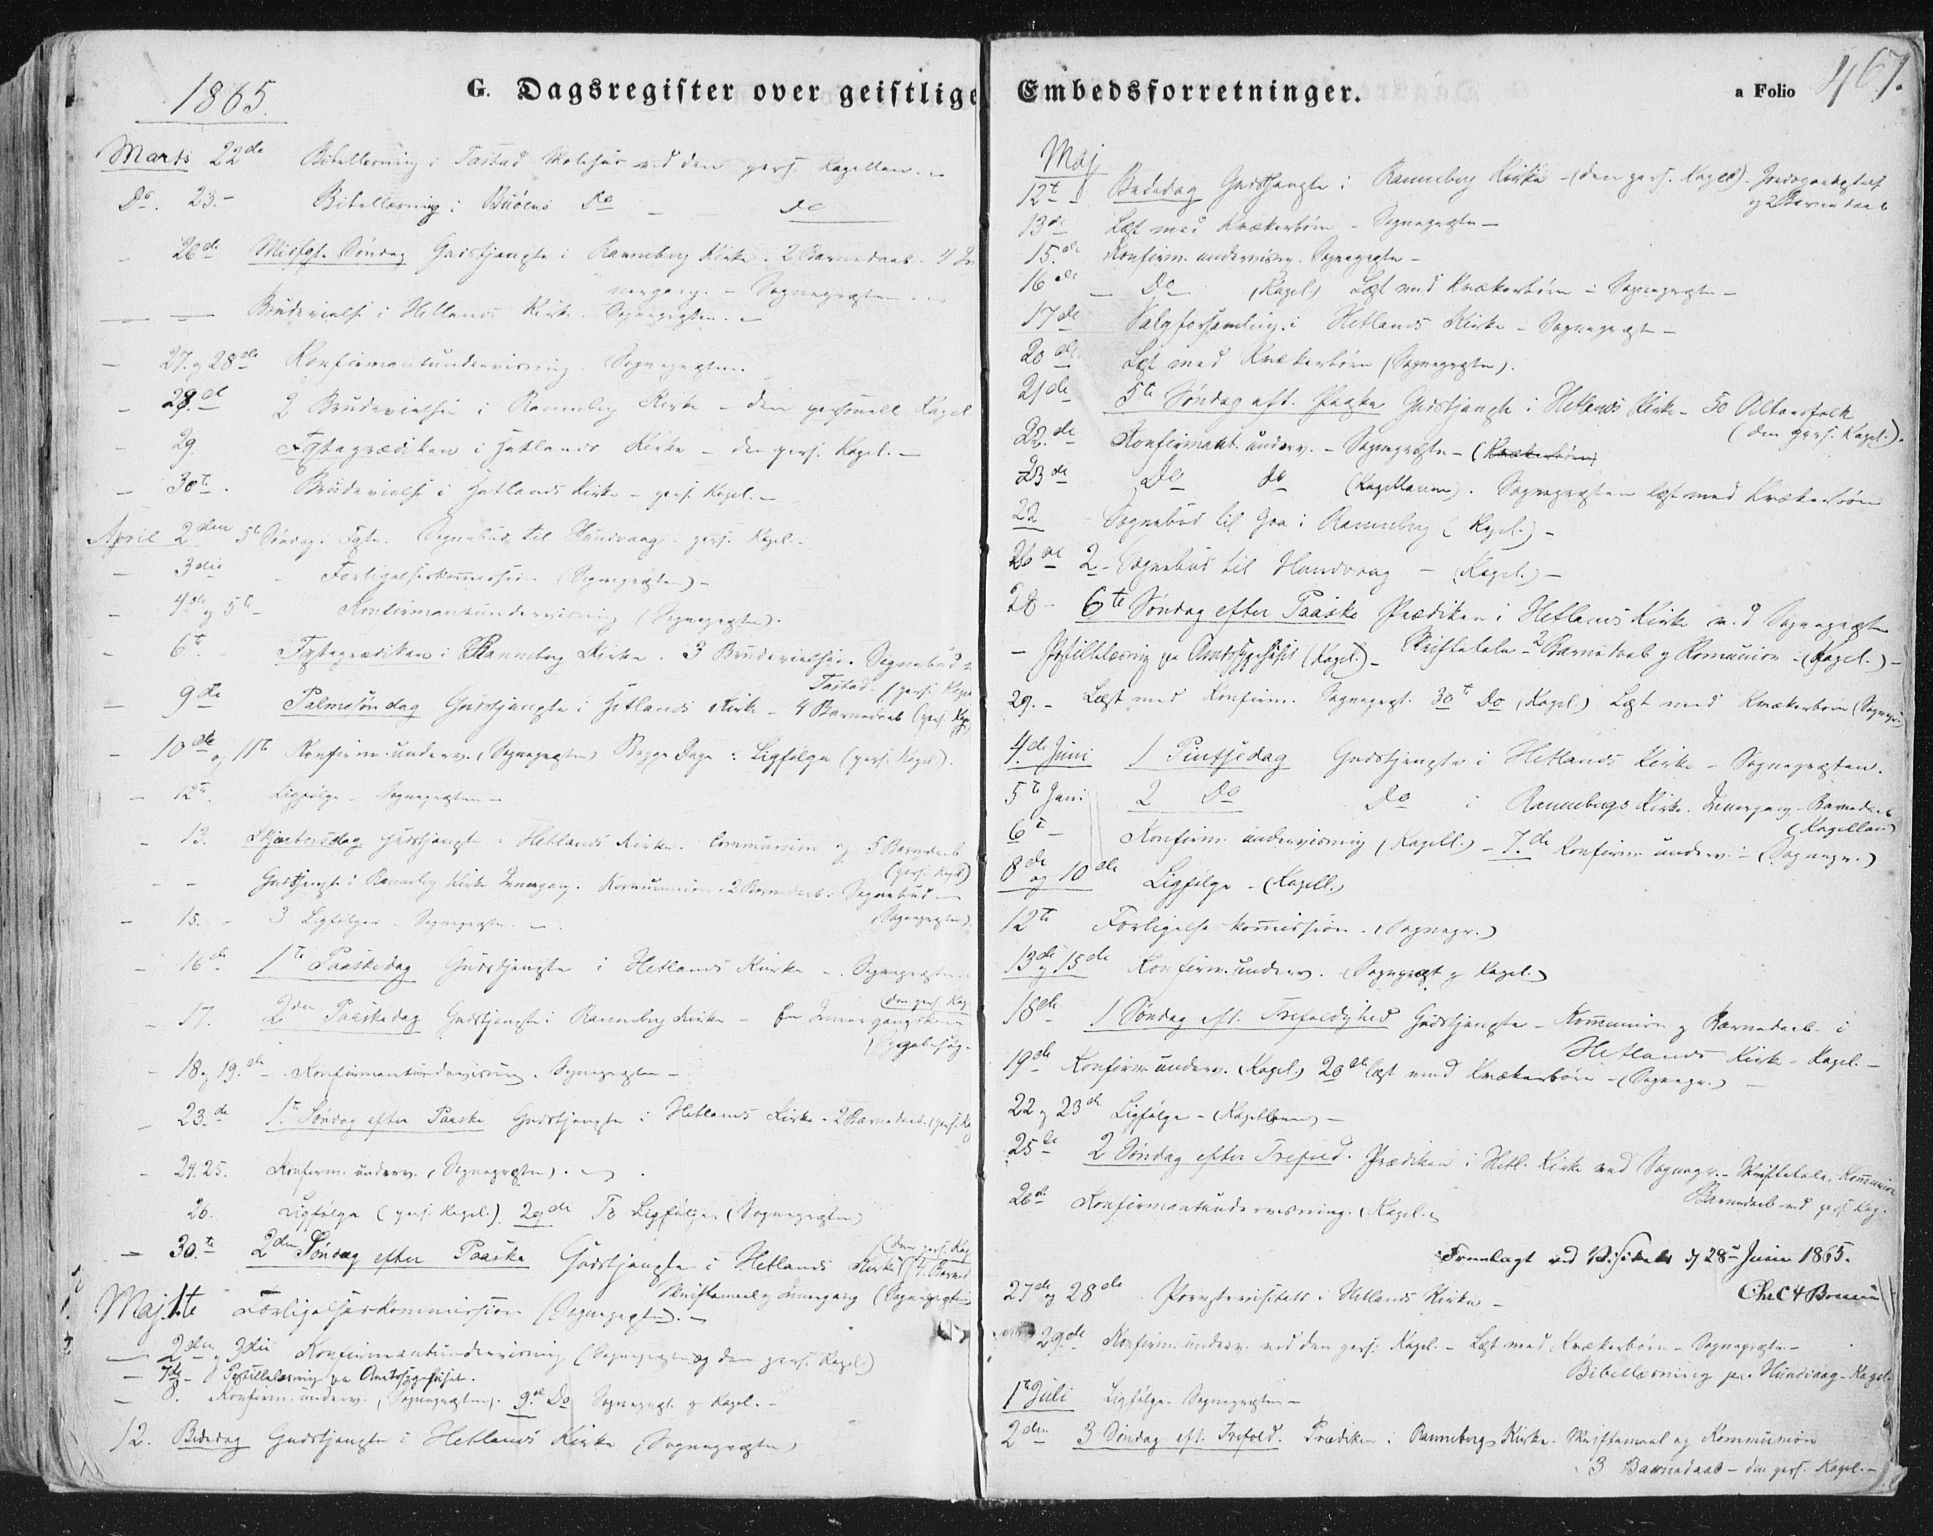 1865.
G. Dagsregister over geistlige
Marts 22de Bibellæsning i Tastad Skolehus ved den pers. Kapellan. –
Do. 23.– Bibellæsning i Buøens Do – – Do
– 26de Midfaste Søndag Gudstjeneste i Ranneberg Kirke. 2 Barnedaab.
– Sognepræsten
Brudevielse i Hetlands Kirke. Sognepræsten. –
– 27. og 28de Konfirmantundervisning. Sognepræsten.
– 28.de 2 Brudevielser i Ranneberg Kirke – den personell Kapel
– 29 Fasteprædiken i Hetlands Kirke – den pers. Kapel. –
– 30te. Brudevielse i Hetlands Kirke – pers. Kapel. –
April 2den 5te Søndag i Faste. Sognebud til Hundvaag. pers. Kapel.
– 3die – Forligelseskommission. (Sognepræsten) –
– 4de og 5te – Konfirmantundervisning (Sognepræsten).
– 6te Fasteprædiken i Ranneberg Kirke. 3 Brudevielser. Sognebud
Tastad. (pers. Kapel
– 9de Palmesøndag Gudstjeneste i Hetlands Kirke – 4 Barnedaab (pers. Kap
– 10de og 11te Konfirm. underv. (Sognepræsten) Begge Dage: Ligfølge (pers. Kapel).
– 12te. Ligfølge. Sognepræsten –
– 13. Skjærtorsdag Gudstjeneste i Hetlands Kirke. Communion og 5 Barnedaab
(pers. Kapel)
– – Gudstjeneste i Ranneberg Kirke Inngang. Kommunion. 2 Barnedaab. Sognebud –
(Sognepræsten)
– 15. – 3 Ligfølger. Sognepræsten. –
– 16de 1te Paaskedag Gudstjeneste i Hetlands Kirke – Sognepræsten
(den pers. Kap.
– 17. 2den Paaskedag Gudstjeneste i Ranneberg Kirke – En Inngangskone
– 18 og 19.de – Konfirmantundervisning. Sognepræsten –
– 23.de 1te Søndag efter Paaske Gudstjeneste i Hetlands Kirke – 2 Barnedaab. (pers. Ka
– 24. 25. Konfirm. underv. (Sognepræsten). –
26. Ligfølge (pers. Kapel.). 29de To Ligfølger (Sognepræsten)
(den pers. Kap
– 30te 2den Søndag efter Paaske Gudstjeneste i Hetlands Kirke
Skriftemaal og Inngang (Sognepræsten
Maj 1te Forligelseskommission (Sognepræsten). –
– 2den og 3die Konfirmantundervisning (Sognepræsten og den pers. Kapel.)
– 7de – Postillelæsning paa Amtssygehuset.
– 8. Konfirm. underv. (Sognepræsten). 9de Do Sognepræst. og Kapel. –
12. Bededag Gudstjeneste i Hetlands Kirke (Sognepræsten)
Embedsforretninger.
a Folio 467.
Maj
12te – Bededag Gudstjeneste i Ranneberg Kirke – (den pers. Kapel).
og 2 Barnedaab
13de Læst med Kvækerbørn – Sognepræsten –
15.de Konfirm. underviisn. Sognepræsten –
16de – Do (Kapel) Læst med Kvækerbørn – Sognepræsten –
17de Valgforsamling i Hetlands Kirke – Sognepræst –
20de Læst med Kvækerbørn (Sognepræsten).
21de 5te Søndag eft. Paaske Gudstjeneste i Hetlands Kirke – 50 Altersfolk
(den pers. Kapel.).
22.de Konfirmant. underv. – Sognepræsten – (Kvækerbørn)
23de Do do (Kapellanen). Sognepræsten læst med Kvækerbørn
22 Sognebud til Goa i Ranneberg (Kapel.) –
26de 2 – Sognebud til Hundvaag – (Kapel.) –
28 – 6te Søndag efter Paaske Prædiken i Hetlands Kirke ved Sognepræsten
– Postillelæsning paa Amtssygehuset (Kapel.) – Skriftetale – 2 Barnedaab og Komunion – (Kapel.) –
29. – Læst med Konfirm. Sognepræst. 30te Do (Kapel.) Læst med Kvækerbørn (Sognepr.)
4de Juni 1 Pintsedag Gudstjeneste i Hetlands Kirke – Sognepræsten.
5te Juni 2 Do Do i Rannebergs Kirke. Inngang – Barnedaab
(Kapellan)
6te – Konfirm. undervisning (Kapell.) – 7.de Konfirm underv. – (Sognepr.)
8de og 10de Ligfølge – (Kapell.)
12te Forligelseskommission. (Sognepr.)
13de og 15de Konfirm. underv. (Sognepræst og Kapel.)
18de 1 Søndag eft. Trefoldighed Gudstjeneste – Kommunion og Barnedaab i
Hetlands Kirke – Kapel. –
19de Konfirm. underv. (Kapel.) 20de læst med Kvækerbørn – (Sognepr.) –
22 og 23de Ligfølge – (Kapellanen) –
25de 2 Søndag efter Trefold. Prædiken i Hetl. Kirke ved Sognepr. – Skriftetale, Kommunion
Barnedaab ved pers. Kap.
26de Konfirmantundervisning. (Kapel.)
Fremlagt ved Visitats d 28de Juni 1865.
27de og 28de. Provstevisitats i Hetlands Kirke –
29de Konfirm. underv. ved den pers. Kapel. – Læst med Kvækerbørn – Sognepræsten –
Bibellæsning paa Hundvaag – Kapel.
1te Juli Ligfølge. Sognepræsten –
2den 3 Søndag eft. Trefold. Prædiken i Ranneberg Kirke. Skriftemaal og Kommunion
3 Barnedaab – den pers. Kapel. –